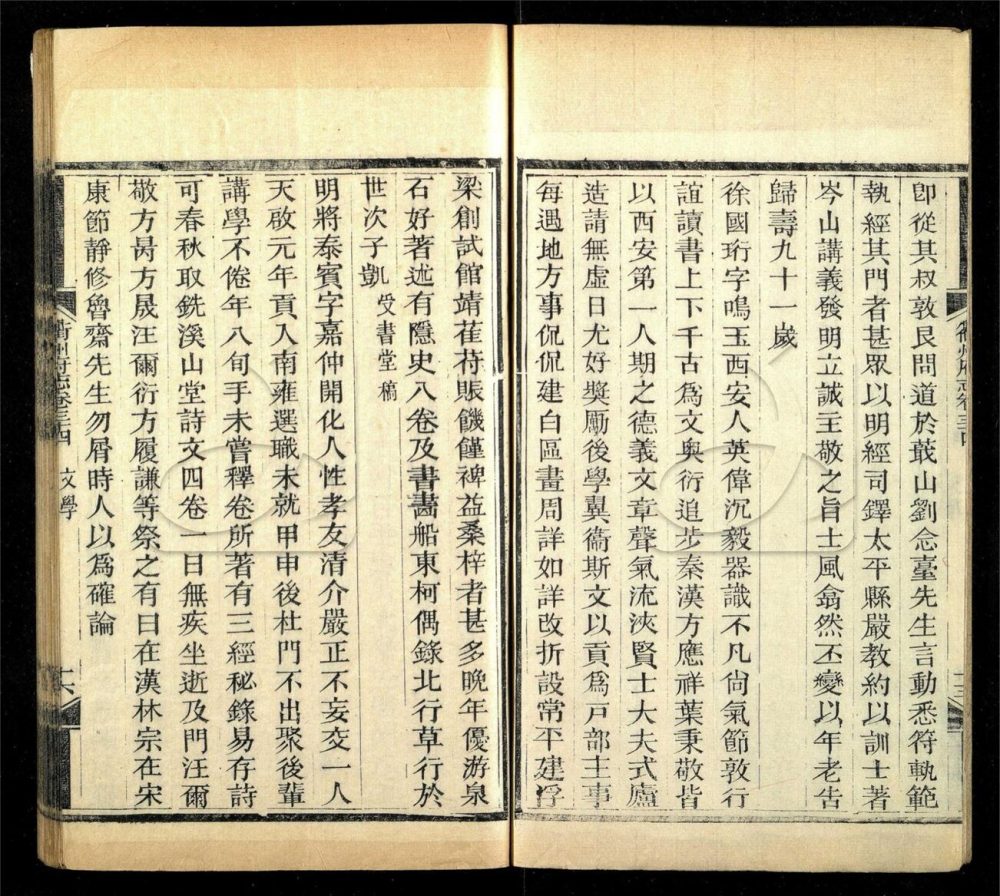 卽從其叔敦艮問道於蕺山劉念臺先生言動悉符軌範
執經其門者甚眾以明經司鐸太平縣嚴教約以訓士著
岑山講義發明立誠主敬之旨士風翕然丕變以年老告
歸壽九十一歲
徐國珩字鳴玉西安人英偉沉毅器識不凡尙氣節敦行
誼讀書上下千古爲文奧衍追步秦漢方應祥葉秉敬皆
以西安第一人期之德義文章聲氣流浹賢士大夫式廬
造請無虛日尤好獎勵後學翼衞斯文以貢爲戸部主事
每遇地方事侃侃建白區畫周詳如詳改折設常平建浮
衢州府志卷三十四
梁創試館靖萑苻賬饑饉裨益桑梓者甚多晚年優游泉
石好著述有隱史八卷及書畵船東柯偶錄北行草行於
世次子凱 受書堂稿
明將泰賓字嘉仲開化人性孝友清介嚴正不妄交一人
天啟元年貢入南雍選職未就甲申後杜門不出聚後輩
講學不倦年八旬手未嘗釋卷所著有三經秘錄易存詩
可春秋取銑溪山堂詩文四卷一日無疾坐逝及門汪爾
敬方昺方晟汪爾衍方履謙等祭之有曰在漢林宗在宋
康節靜修魯齋先生勿屑時人以爲確論
衢州府志卷三十四 文學 十六